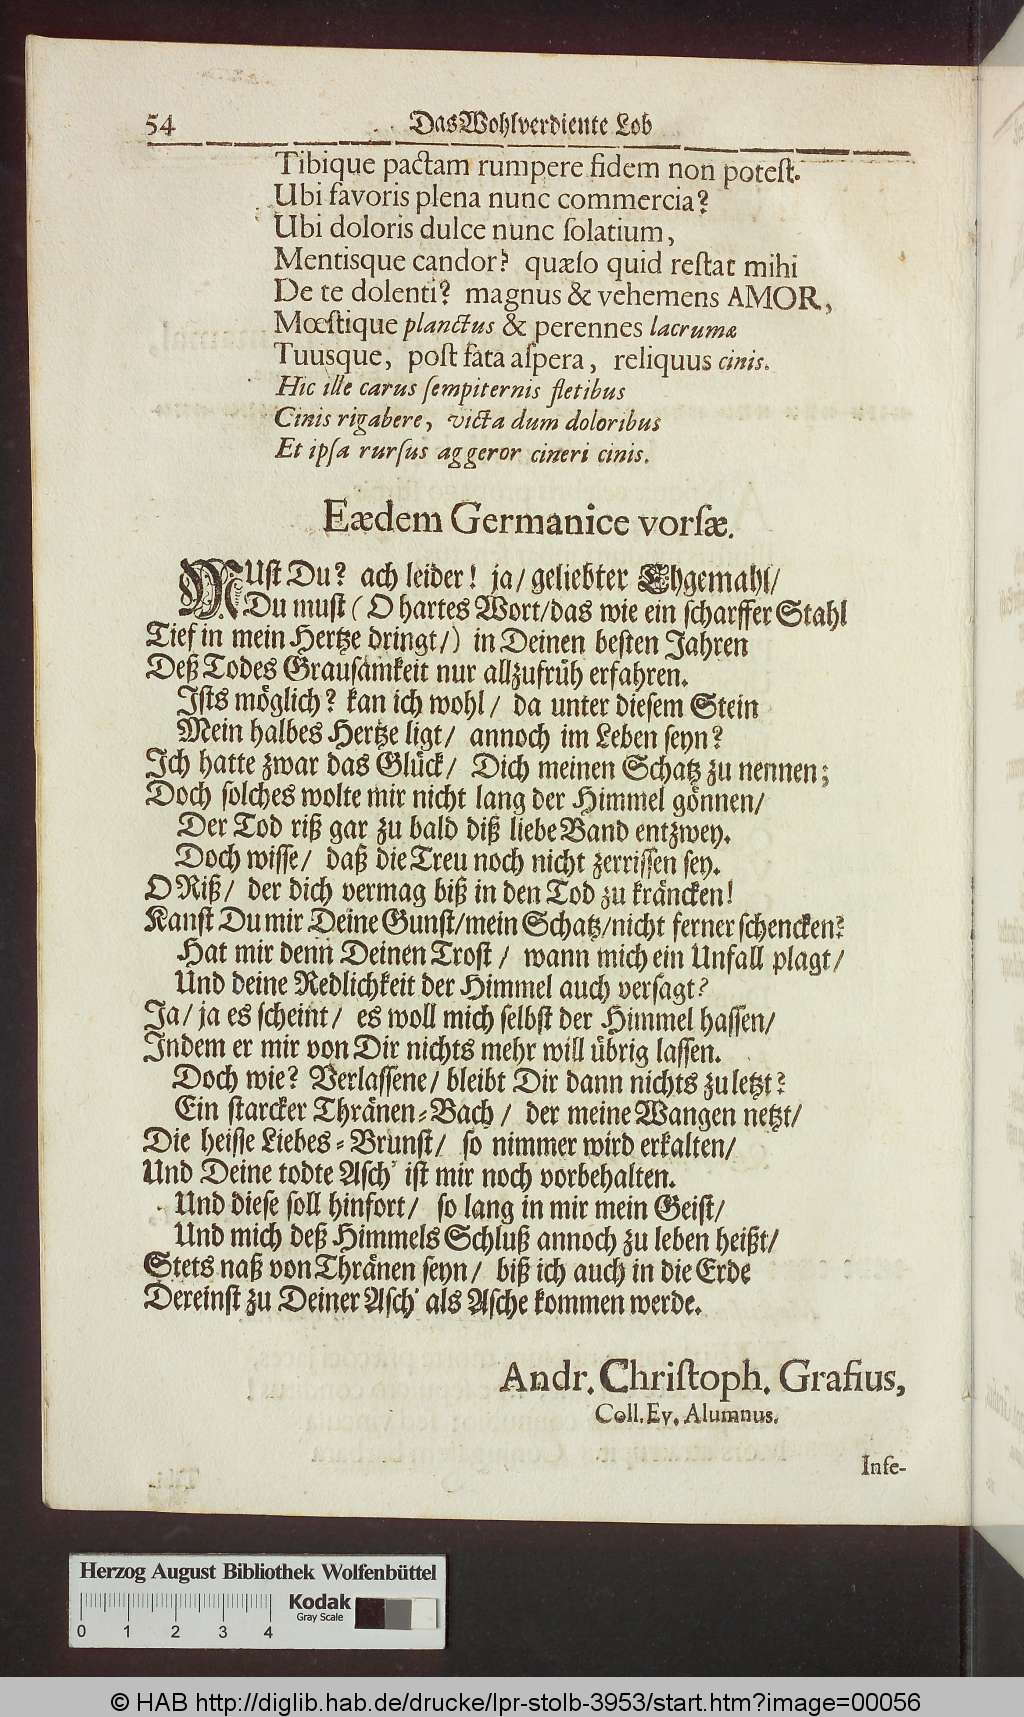 54 Das Wohlverdiente Lob
Tibique pactam rumpere fidem non potest.
Ubi favoris plena nunc commercia?
Ubi doloris dulce nunc ſolatium,
Mentisque candor? quæſo quid reſtat mihi
De te dolenti? magnus & vehemens AMOR,
Mœſtique planctus & perennes lacrumæ
Tuusque, poſt fata aſpera, reliquus cinis.
Hic ille carus ſempiternis fletibus
Cinis rigabere, victa dum doloribus
Et ipſa rurſus aggeror cineri cinis.
Eædem Germanice vorſæ.
MUſt Du? ach leider! ja/ geliebter Ehgemahl/
Du muſt (O hartes Wort/ das wie ein ſcharffer Stahl
Tief in mein Hertze dringt/) in Deinen beſten Jahren
Deß Todes Grauſamkeit nur allzufrüh erfahren.
Iſts möglich? kan ich wohl/ da unter dieſem Stein
Mein halbes Hertze ligt/ annoch im Leben ſeyn?
Ich hatte zwar das Glück/ Dich meinen Schatz zu nennen;
Doch ſolches wolte mir nicht lang der Himmel gönnen/
Der Tod riß gar zu bald diß liebe Band entzwey.
Doch wiſſe/ daß die Treu noch nicht zerriſſen ſey.
O Riß/ der dich vermag biß in den Tod zu kräncken!
Kanſt Du mir Deine Gunſt/ mein Schatz/ nicht ferner ſchencken?
Hat mir denn Deinen Troſt/ wann mich ein Unfall plagt/
Und deine Redlichkeit der Himmel auch verſagt?
Ja/ ja es ſcheint/ es woll mich ſelbſt der Himmel haſſen/
Indem er mir von Dir nichts mehr will übrig laſſen.
Doch wie? Verlaſſene/ bleibt Dir dann nichts zu letzt?
Ein ſtarcker Thränen-Bach/ der meine Wangen netzt/
Die heiſſe Liebes-Brunſt/ ſo nimmer wird erkalten/
Und Deine todte Aſch' iſt mir noch vorbehalten.
Und dieſe ſoll hinfort/ ſo lang in mir mein Geiſt/
Und mich deß Himmels Schluß annoch zu leben heißt/
Stets naß von Thränen ſeyn/ biß ich auch in die Erde
Dereinſt zu Deiner Aſch' als Aſche kommen werde.
Andr. Chriſtoph. Grafius,
Coll. Ev. Alumnus.
Inſe-
Herzog August Bibliothek Wolfenbüttel
Kodak
Gray Scale
0 1 2 3 4
© HAB http://diglib.hab.de/drucke/lpr-stolb-3953/start.htm?image=00056